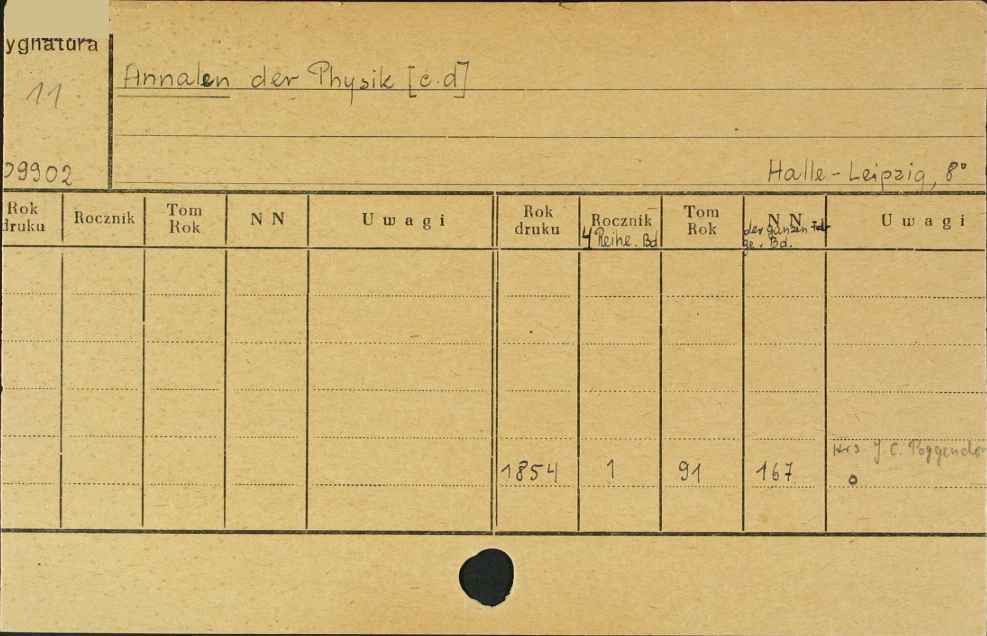 ygnatura
11
Annalen der Physik [c.d]
09902
Halle-Leipzig, 8°
Rok druku Rocznik Tom Rok NN Uwagi Rok druku Rocznik Tom Rok NN Uwagi
4 Reihe. Bd der ganzen
ge. Bd.
J. C. Poggendor
1854 1 91 167